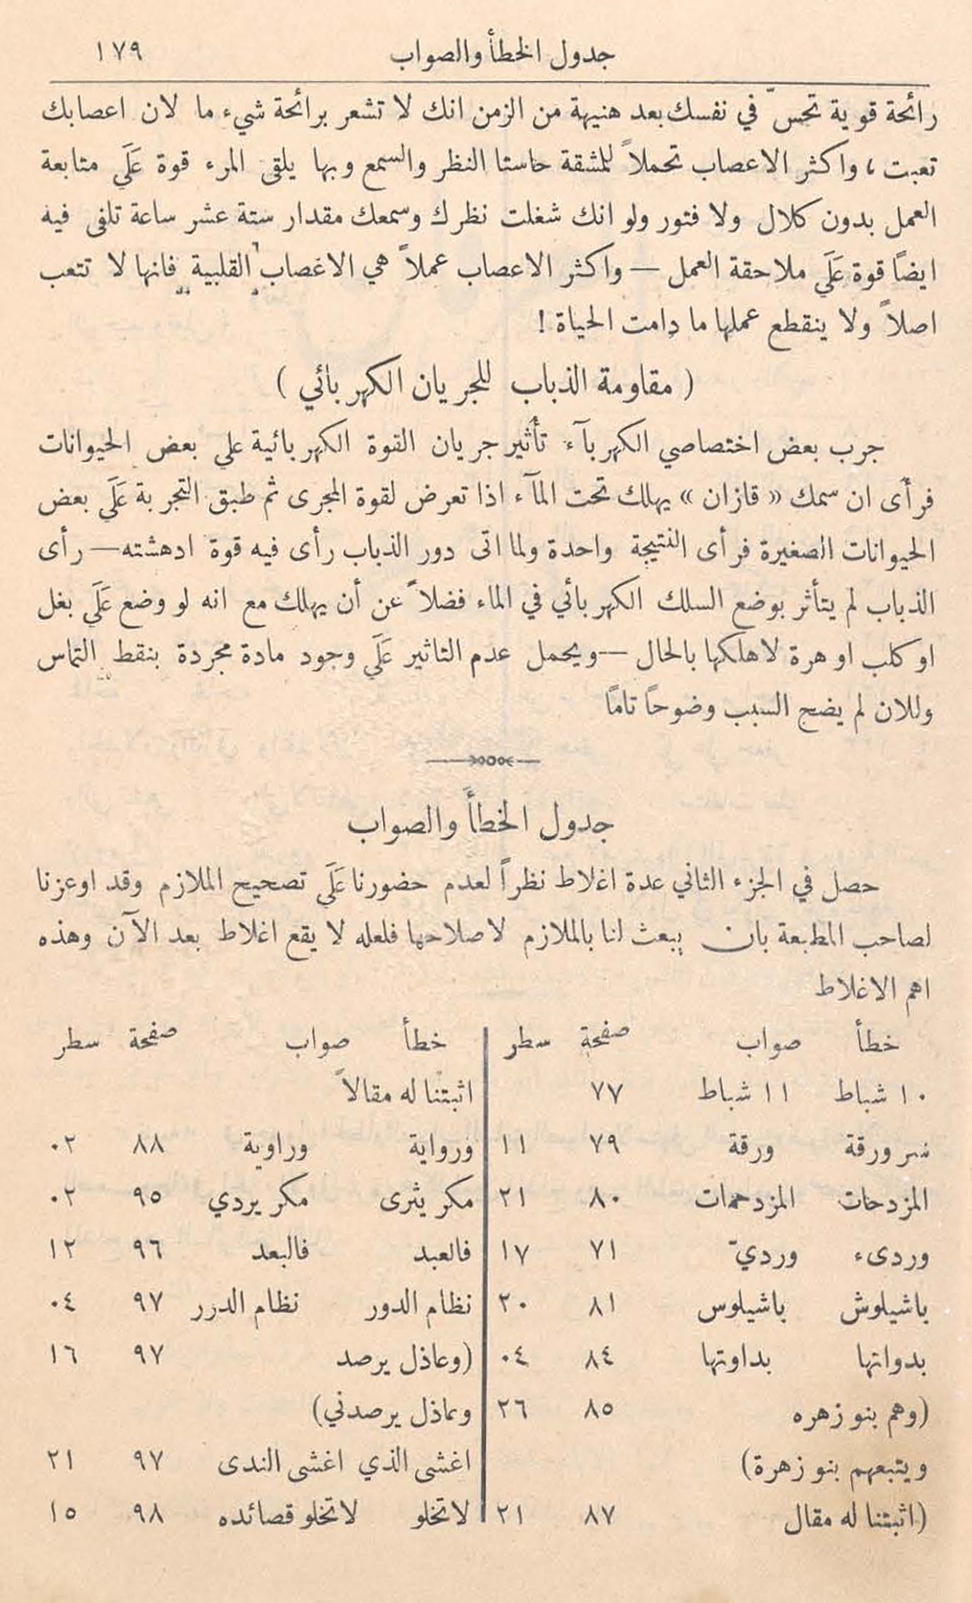 جدول الخطأ والصواب ١٧٩
رائحة قوية تحسّ في نفسك بعد هنيهة من الزمن انك لا تشعر برائحة شيء ما لان اعصابك
تعبت ، واكثر الاعصاب تحملاً للمشقة حاستا النظر والسمع وبها يلقى المرء قوة عَلَى متابعة
العمل بدون كلال ولا فتور ولو انك شغلت نظرك وسمعك مقدار ستة عشر ساعة تلفى فيه
ايضاً قوة عَلَى ملاحقة العمل — واكثر الاعصاب عملاً هي الاغصاب القلبية فانها لا تتعب
اصلاً ولا ينقطع عملها ما دامت الحياة !
( مقاومة الذباب للجريان الكهربائي )
جرب بعض اختصاصي الكهربآء تأثير جريان القوة الكهربائية على بعض الحيوانات
فرأى ان سمك « قازان » يهلك تحت المآء اذا تعرض لقوة المجرى ثم طبق التجربة عَلَى بعض
الحيوانات الصغيرة فرأى النتيجة واحدة ولما اتى دور الذباب رأى فيه قوة ادهشته — رأى
الذباب لم يتأثر بوضع السلك الكهربائي في الماء فضلاً عن أن يهلك مع انه لو وضع عَلَى بغل
او كلب او هرة لاهلكها بالحال — ويحمل عدم التاثير عَلَى وجود مادة مجردة بنقط التماس
وللان لم يضح السبب وضوحاً تاماً
جدول الخطأ والصواب
حصل في الجزء الثاني عدة اغلاط نظراً لعدم حضورنا عَلَى تصحيح الملازم وقد اوعزنا
لصاحب المطبعة بان يبعث لنا بالملازم لاصلاحها فلعله لا يقع اغلاط بعد الآن وهذه
اهم الاغلاط
خطأ صواب صفحة سطر
١٠ شباط ١١ شباط ٧٧
نسر ورقة ورقة ٧٩ ١١
المزدحات المزدحمات ٨٠ ٢١
وردىء ورديّ ٧١ ١٧
باشيلوش باشيلوس ٨١ ٢٠
بدواتها بداوتها ٨٤ ٠٤
(وهم بنو زهره ٨٥ ٢٦
ويتبعهم بنو زهرة)
(اثبتنا له مقال ٨٧ ٢١
خطأ صواب صفحة سطر
اثبتنا له مقالاً
ورواية وراوية ٨٨ ٠٢
مكر يثرى مكر يردي ٩٥ ٠٢
فالعبد فالبعد ٩٦ ١٢
نظام الدور نظام الدرر ٩٧ ٠٤
(وعاذل يرصد ٩٧ ١٦
وعاذل يرصدني)
اغشى الذي اغشى الندى ٩٧ ٢١
لاتخلو لاتخلو قصائده ٩٨ ١٥